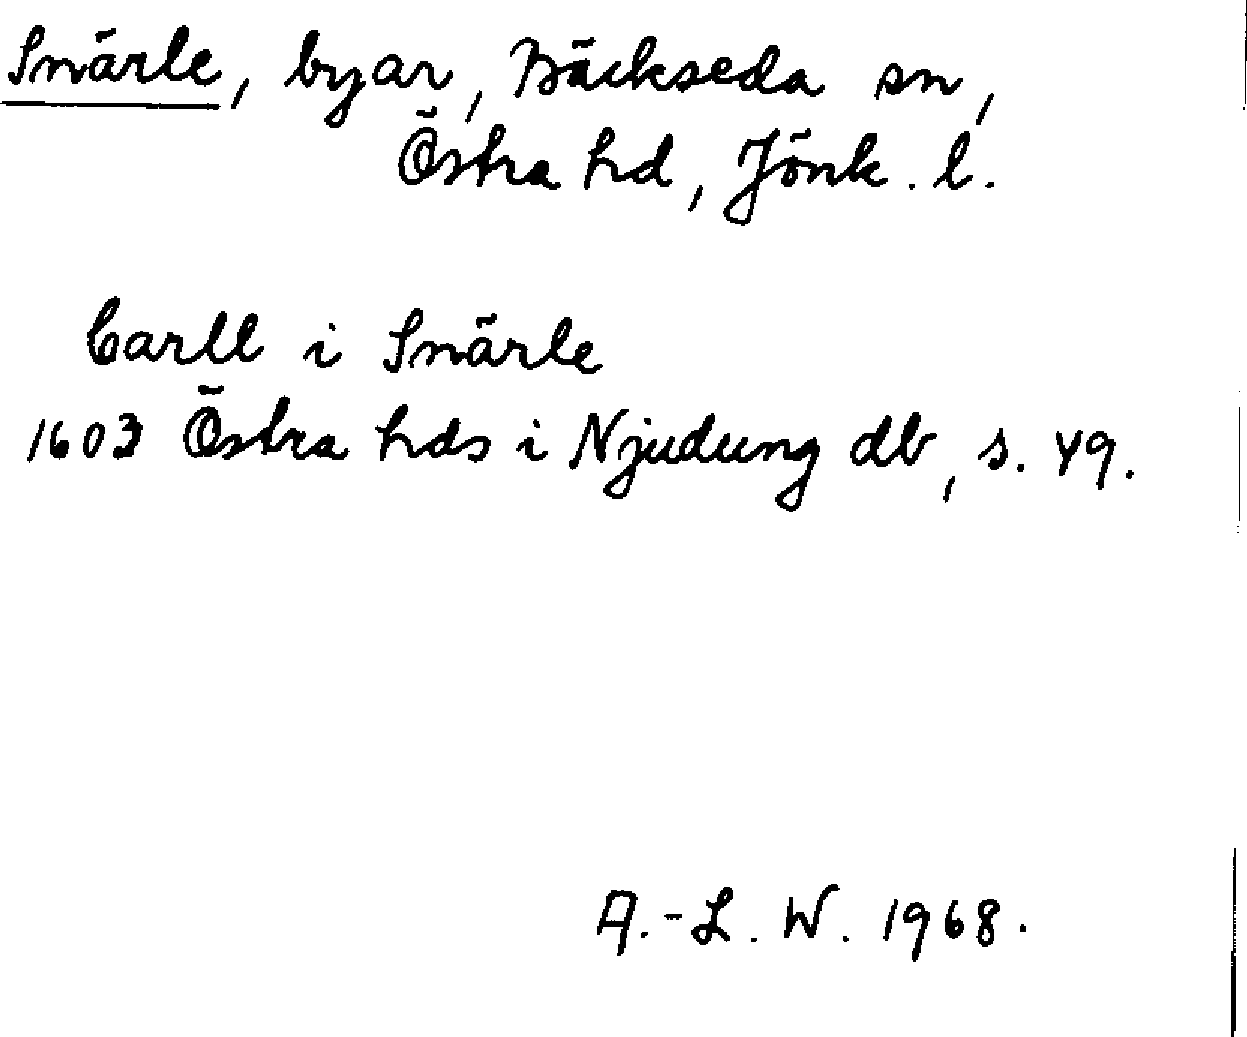 Snärle, byar, Bäckseda sn,
Östra hd, Jönk. l.
Carll i Snärle
1603 Östra hds i Njudung db, s. 49.
A.-L. W. 1968.